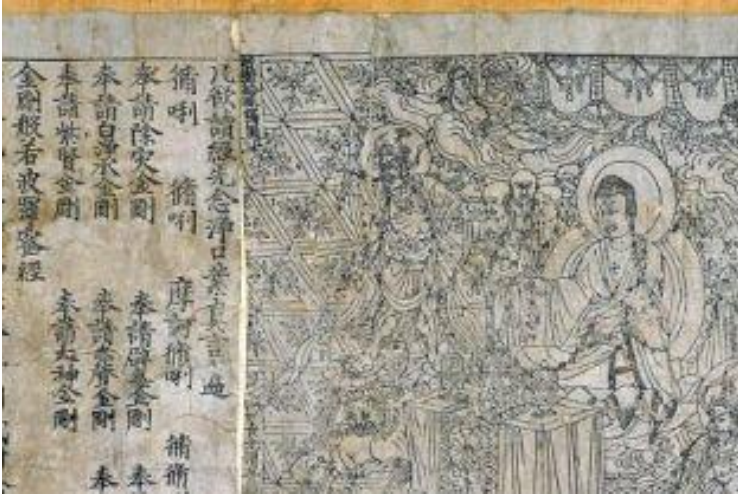 凡欲讀經先念淨口業真言一遍
脩唎 脩唎 摩訶脩唎
奉請除灾金剛 奉請辟毒金剛 奉
奉請白淨水金剛 奉請金剛 奉
奉請紫賢金剛 奉請大神金剛
金剛般若波羅蜜經